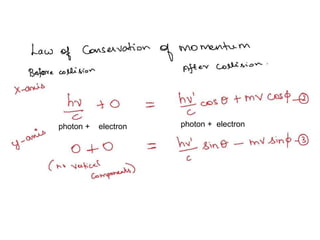 Law of Conservation of momentum
Before collision After Collision.
x-axis
hν/c + 0 = hν'/c cosθ + mv cosϕ -②
photon + electron photon + electron
y-axis
0 + 0 = hν'/c sinθ - mv sinϕ -③
(no vertical components)